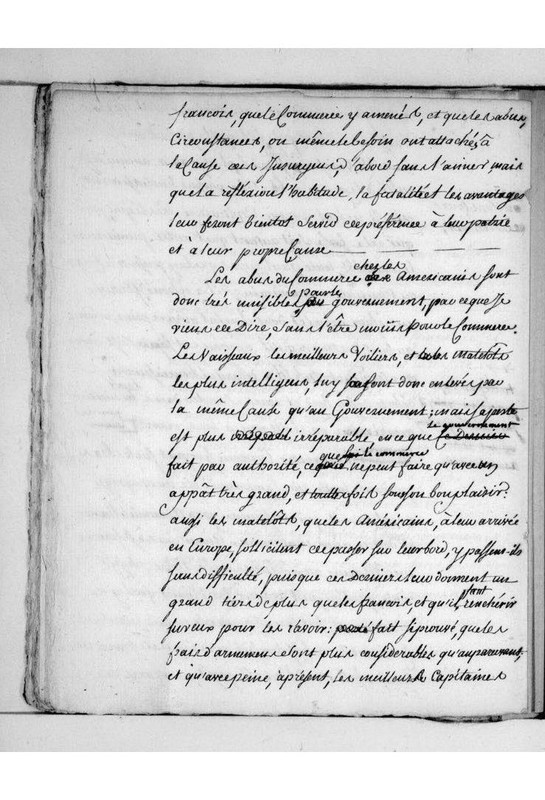 francois, que le Commerce y amenés, et que les abus,
Circonstances, ou même le besoin ont attachés à
la Cause des Insurgens, d'abord sans l'aimer, mais
que la réflexion l'habitude, la fatalité et les avantages
leur feront bientot servir de préférence à leur patrie
et à leur propre Cause
Les abus du Commerce chez les Américains sont
donc très nuisibles pour le gouvernement, par ce que je
viens de Dire, sans l'être moins pour le Commerce.
Les Vaisseaux les meilleurs Voiliers, et les matelôts
les plus intelligens, lui sont donc enlevés par
la même Cause qu'au Gouvernement; mais sa perte
est plus irréparable en ce que le gouvernement
fait par authorité, ce que le commerce ne peut faire qu'avec un
appât très grand, et fois sous son bon plaisir:
aussi les matelôts, que les Américains, à leur arrivée
en Europe, sollicitent de passer sur leur bord, y passent-ils
sans difficulté, puisque ces Derniers leur donnent un
grand tiers de plus que les francois et qu'il faut renchérir
sur eux pour les ravoir: fait si prouvé, que les
frais d'armemens sont plus considerables qu'auparavant,
et qu'avec peine, apresent, les meilleurs Capitaines